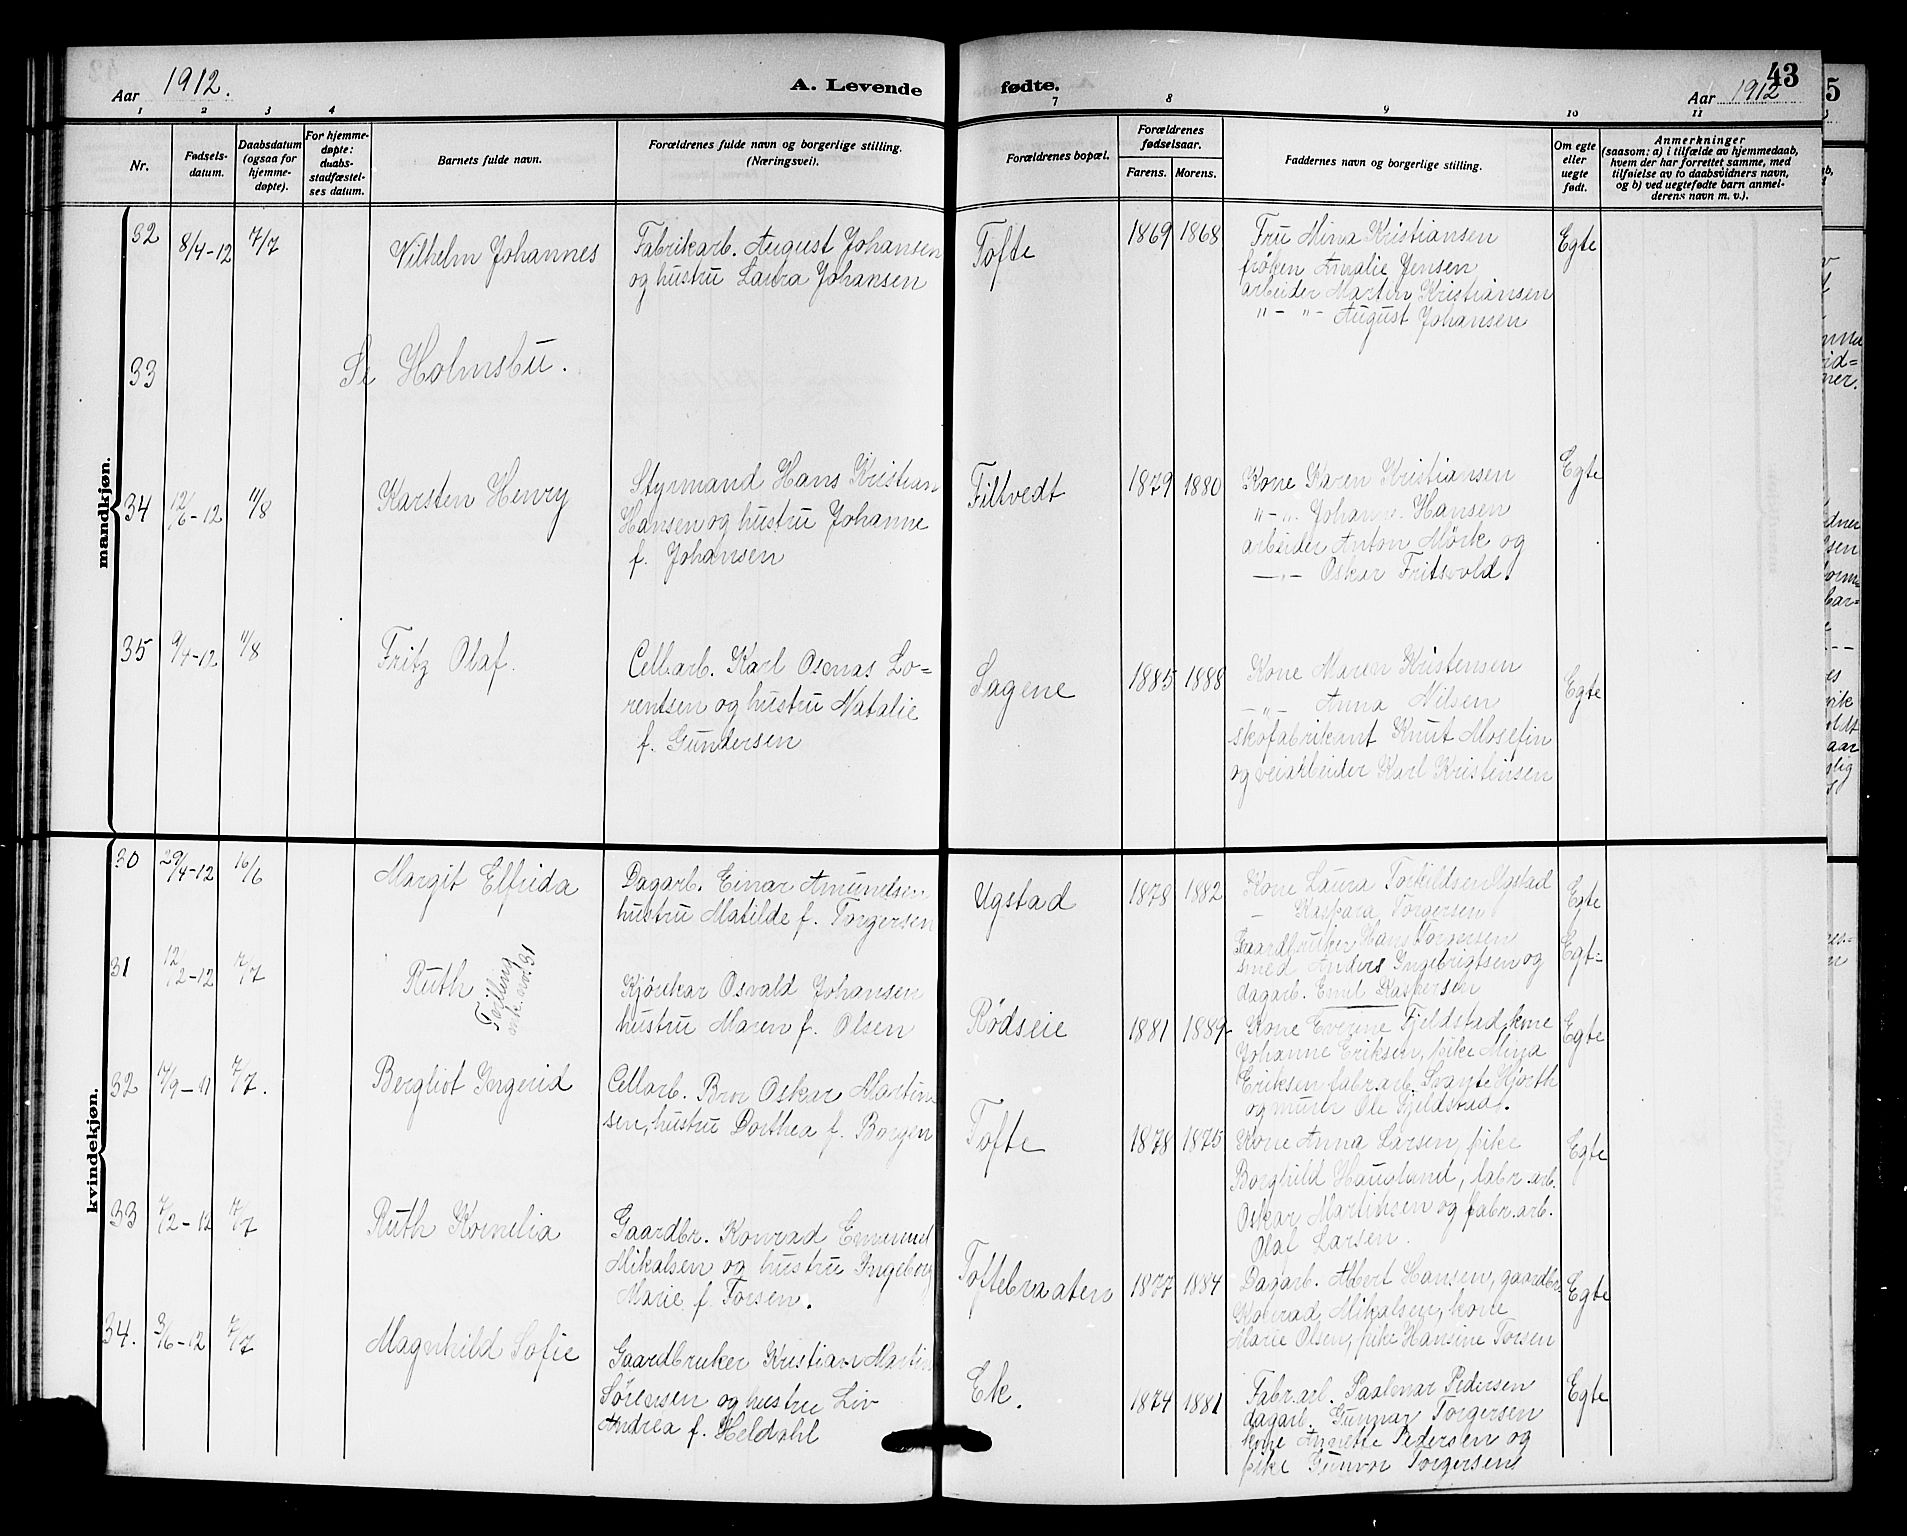 Aar 1912.
A. Levende fødte.
43
Aar 1912
1 2 3 4 7 8 9 10 11
Nr.
Fødsels-
datum.
Daabsdatum
(ogsaa for
hjemme-
døpte).
For hjemme-
døpte:
daabs-
stadfæstel-
ses datum.
Barnets fulde navn.
Forældrenes fulde navn og borgerlige stilling.
(Næringsvei).
Forældrenes bopæl.
Forældrenes
fødselsaar.
Farens. Morens.
Faddernes navn og borgerlige stilling.
Om egte
eller
uegte
født.
Anmerkninger
(saasom: a) i tilfælde av hjemmedaab,
hvem der har forrettet samme, med
tilføielse av to daabsvidners navn,
og b) ved uegtefødte barn anmel-
derens navn m. v.).
mandkjøn.
32 8/4-12 7/7 Wilhelm Johannes
Fabrikarb. August Johansen
og hustru Laura Johansen
Tofte 1869 1868
Fru Mina Kristiansen
frøken Amalie Jensen
arbeider Martin Kristiansen
"- "- August Johansen
Egte
33 Se Holmsbu.
34 12/6-12 11/8 Karsten Henry
Styrmand Hans Kristian
Hansen og hustru Johanne
f. Johansen
Filtvedt 1879 1880
Kone Karen Kristiansen
"-". Johann. Hansen
arbeider Anton Mörk og
—"- Oskar Fritsvold.
Egte
35 9/4-12 11/8 Fritz Olaf.
Cell.arb. Karl Osmas Lo-
rentsen og hustru Natalie
f. Gundersen
Sagene 1885 1888
Kone Maren Kristensen
—"— Anna Nilsen
skofabrikant Knut Mosefin
og veiarbeider Karl Kristinsen
Egte
kvindekjøn.
30 29/4-12 16/6 Margit Elfrida
Dagarb. Einar Amundsen
hustru Matilde f. Torgersen
Ugstad 1878 1882
Kone Laura Torkildsen Ugstad
— Kaspara Torgersen
Gaardbruker Hans Torgersen
smed Anders Ingebrigtsen og
dagarb. Emil Kaspersen
Egte
31 12/2-12 7/7 Ruth
Tvilling
31
Kjørekar Osvald Johansen
hustru Maren f. Olsen
Rödseie 1881 1889
Kone Everine Fjeldstad, kone
Johanne Eriksen, pike Mina
Eriksen fabr.arb. Svante Hjorth
og murer Ole Fjeldstad.
Egt-
Egte
32 17/9-11 7/7. Bergliot Ingerid
Cellarb. Bror Oskar Martin
sen, hustru Dorthea f. Borgen
Tofte 1878 1875
Kone Anna Larsen, pike
Borghild Haugland, fabr.arb.
Oskar Martinsen og fabr.arb.
Olaf Larsen.
Egte
33 7/2-12 7/7 Ruth Kornelia
Gaardbr. Konrad Emanuel
Mikalsen og hustru Ingeborg
Marie f. Torsen.
Toftebraaten 1877 1884
Dagarb. Albert Hansen, gaardbr.
Konrad Mikalsen, kone
Marie Olsen, pike Hansine Torsen
Egte
34. 3/6-12 7/7 Magnhild Sofie
Gaardbruker Kristian Martin
Sörensen og hustru Liv
Andrea f. Heldahl
Ek. 1874 1881
Fabr.arb. Paalmar Pedersen
dagarb. Gunnar Torgersen
kone Annette Pedersen og
pike Gunvor Torgersen
Egte